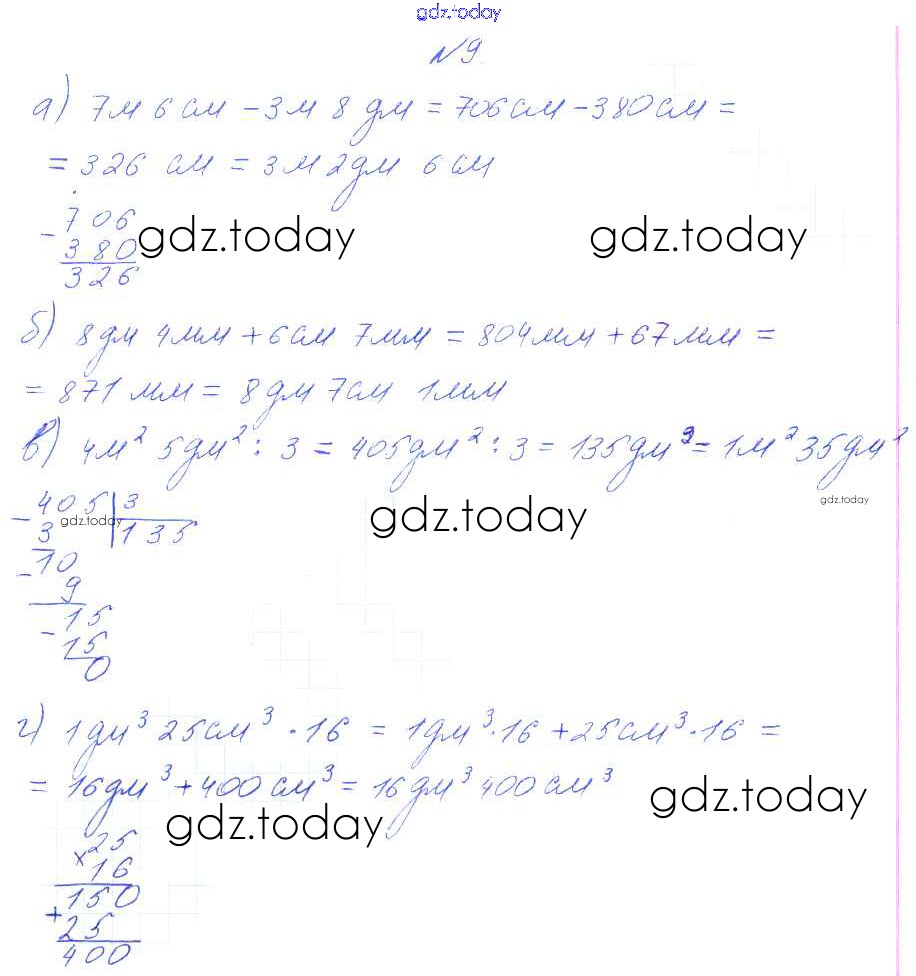 gdz.today
№9.
а) 7м 6 см - 3 м 8 дм = 706 см - 380 см =
= 326 см = 3 м 2 дм 6 см
- 706
380
326
gdz.today
gdz.today
б) 8 дм 4 мм + 6 см 7 мм = 804 мм + 67 мм =
= 871 мм = 8 дм 7 см 1 мм
в) 4 м² 5 дм² : 3 = 405 дм² : 3 = 135 дм³ = 1 м² 35 дм²
- 405 | 3
3 135
gdz.today
gdz.today
gdz.today
- 10
9
- 15
15
0
г) 1 дм³ 25 см³ · 16 = 1 дм³ · 16 + 25 см³ · 16 =
= 16 дм³ + 400 см³ = 16 дм³ 400 см³
gdz.today
gdz.today
× 25
16
150
+ 25
400